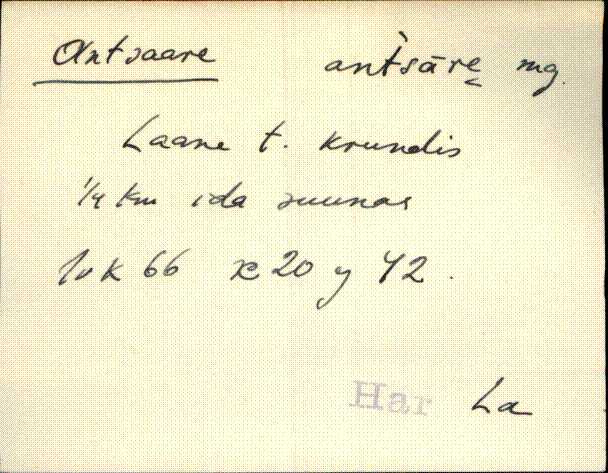 Antsaare antsāre mg.
Laane t. krundis
1/4 km ida suunas
lvk 66 x 20 y 42.
Har La